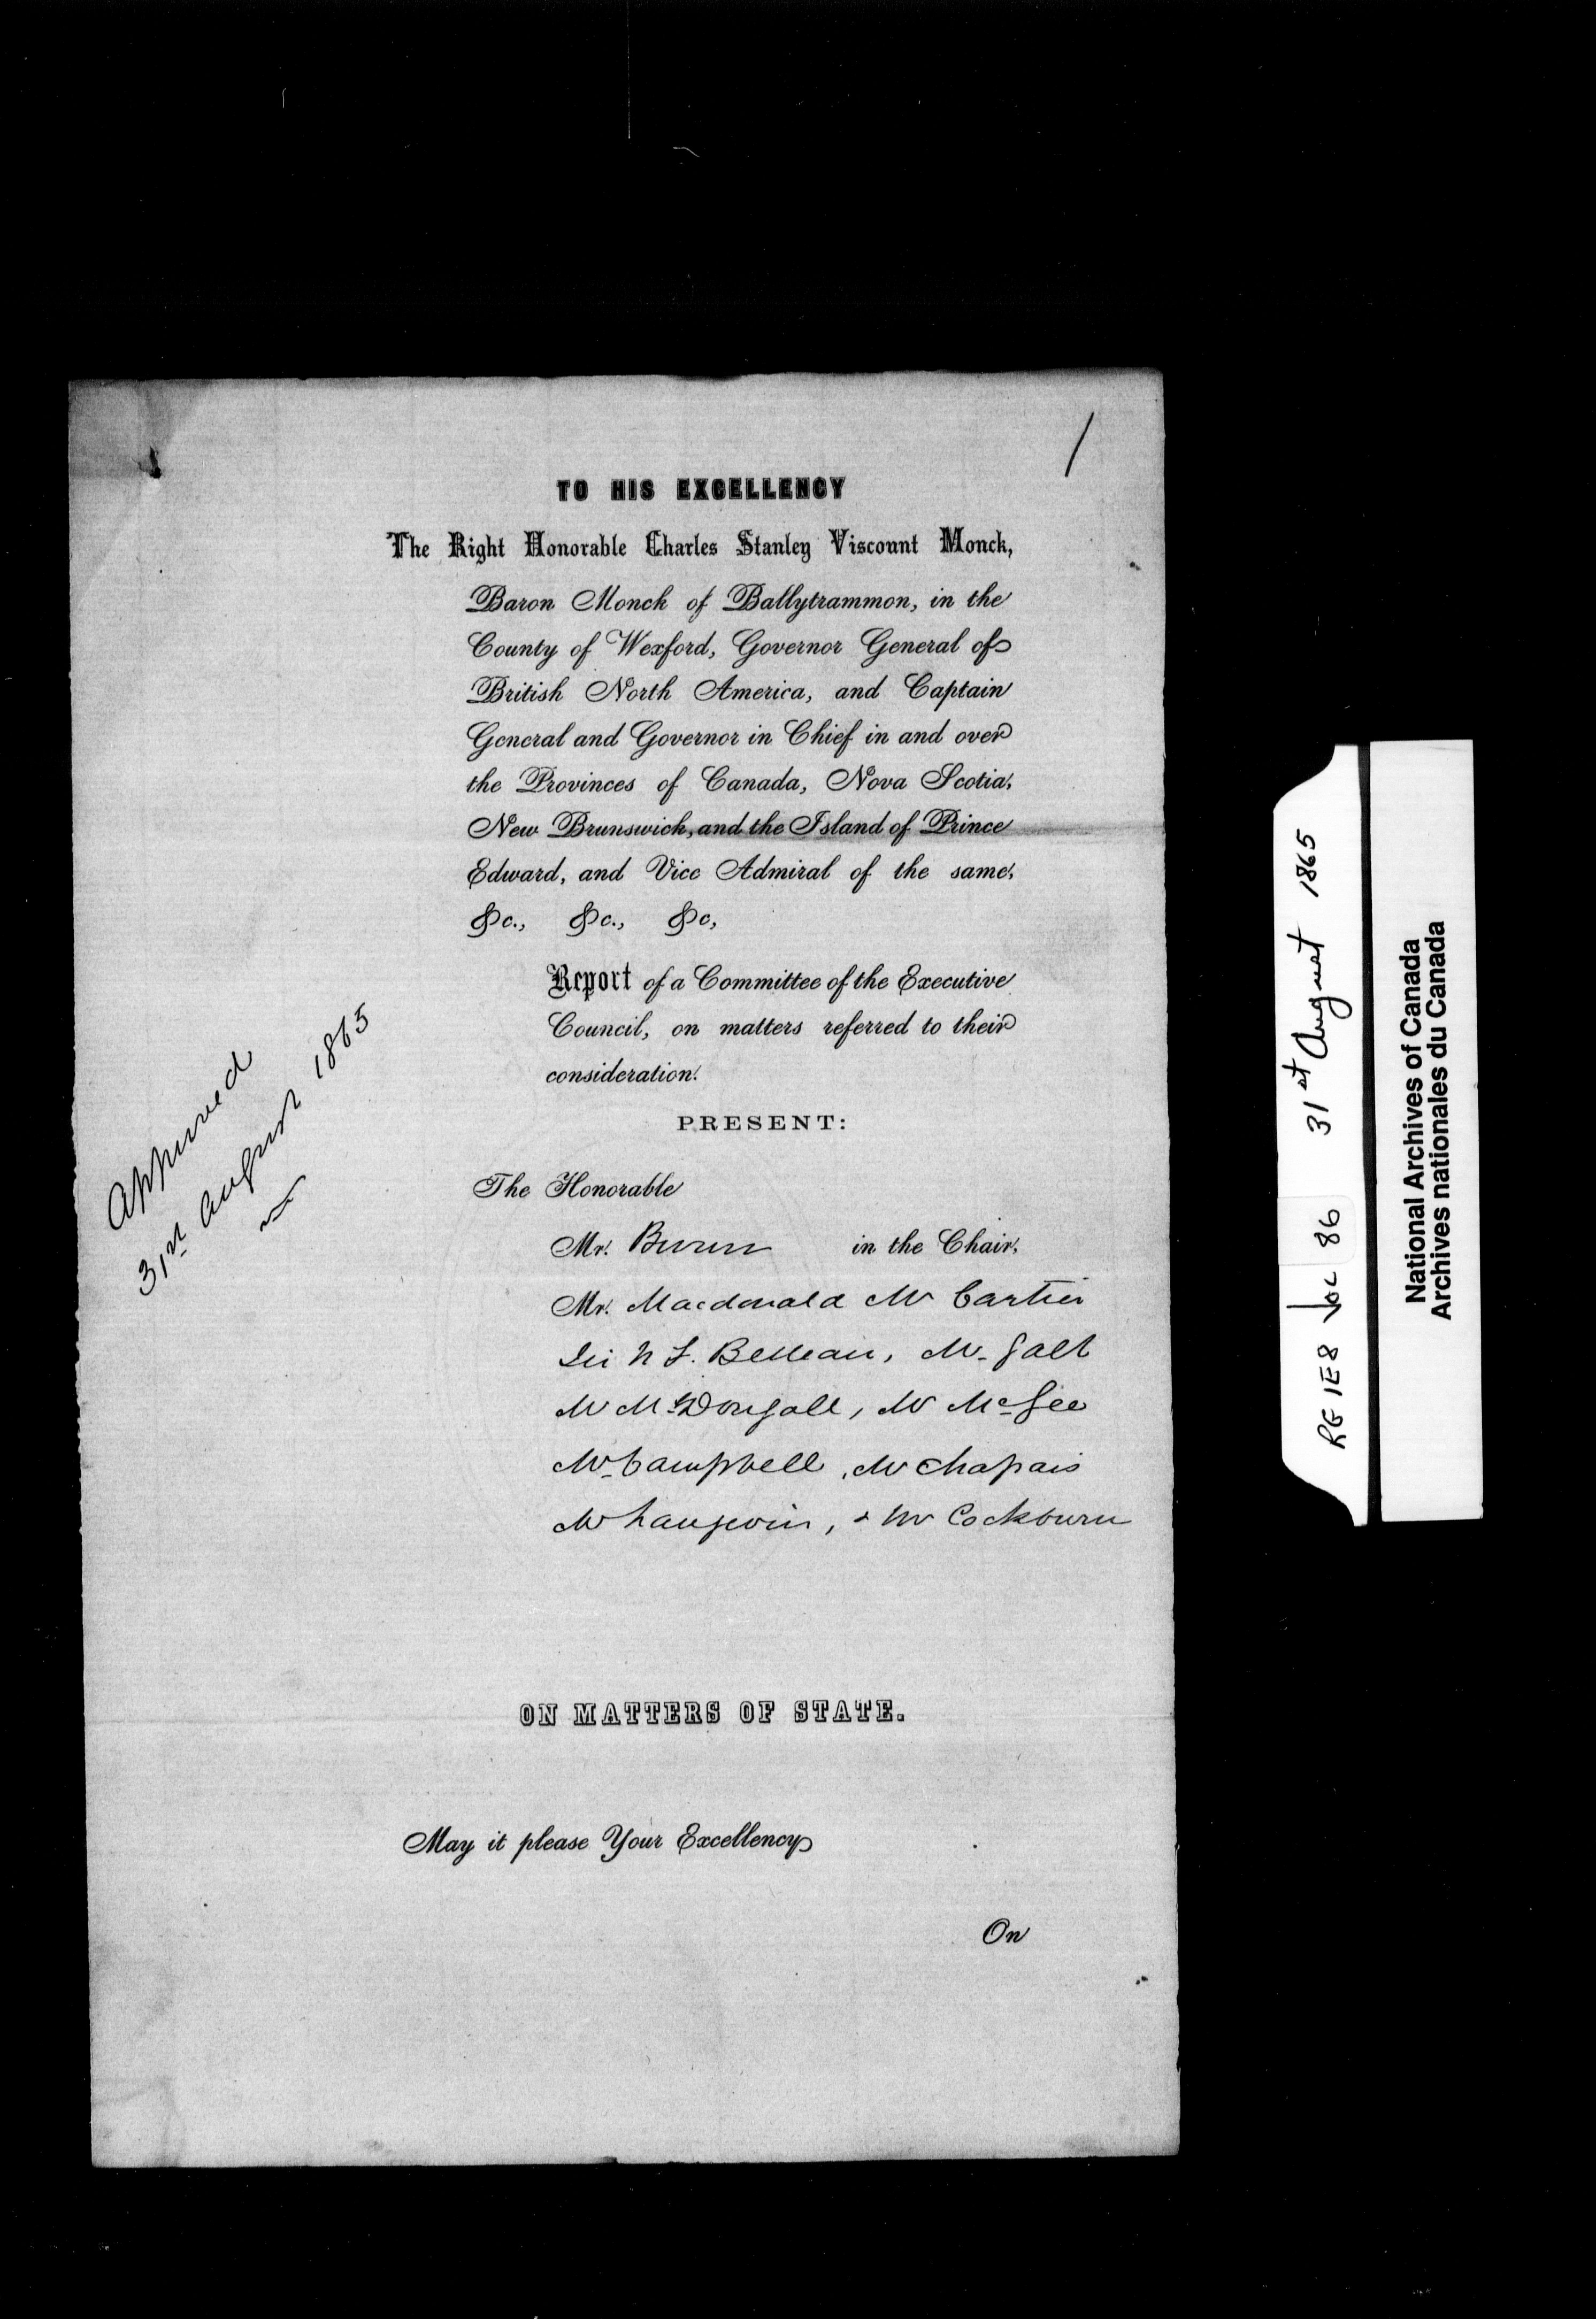 /
TO HIS EXCELLENCY
The Right Honorable Charles Stanley Viscount Monck,
Baron Monck of Ballytrammon, in the
County of Wexford, Governor General of
British North America, and Captain
General and Governor in Chief in and over
the Provinces of Canada, Nova Scotia,
New Brunswick, and the Island of Prince
Edward, and Vice Admiral of the same,
&c., &c., &c,
Report of a Committee of the Executive
Council, on matters referred to their
consideration.
Approved
31st August 1865
PRESENT:
The Honorable
Mr. Brown in the Chair,
Mr. Macdonald Mr Cartier
Sir N F. Belleau, Mr. Galt
Mr McDougall, Mr McGee
Mr Campbell, Mr Chapais
Mr Langevin, & Mr Cockburn
ON MATTERS OF STATE.
May it please Your Excellency
On
RG 1E8 Vol 86 31st August 1865
National Archives of Canada
Archives nationales du Canada